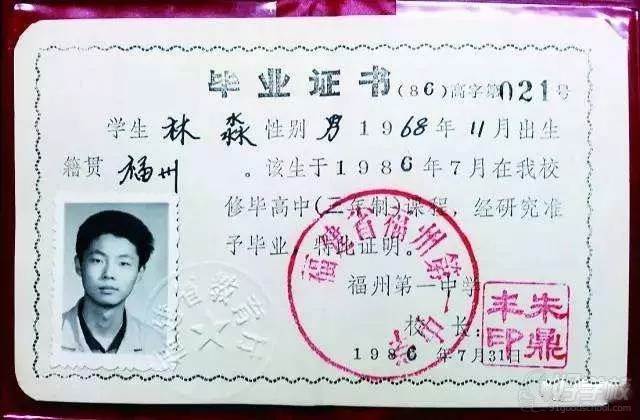 毕业证书(86)高字第021号
学生 林淼 性别 男 1968年11月出生
籍贯 福州 。该生于1986年7月在我校
修毕高中(三年制)课程，经研究准
予毕业，特此证明。
福州第一中学
校 长：
1986年7月31日
福建省福州第一中学
朱鼎丰印
91goodschool.com